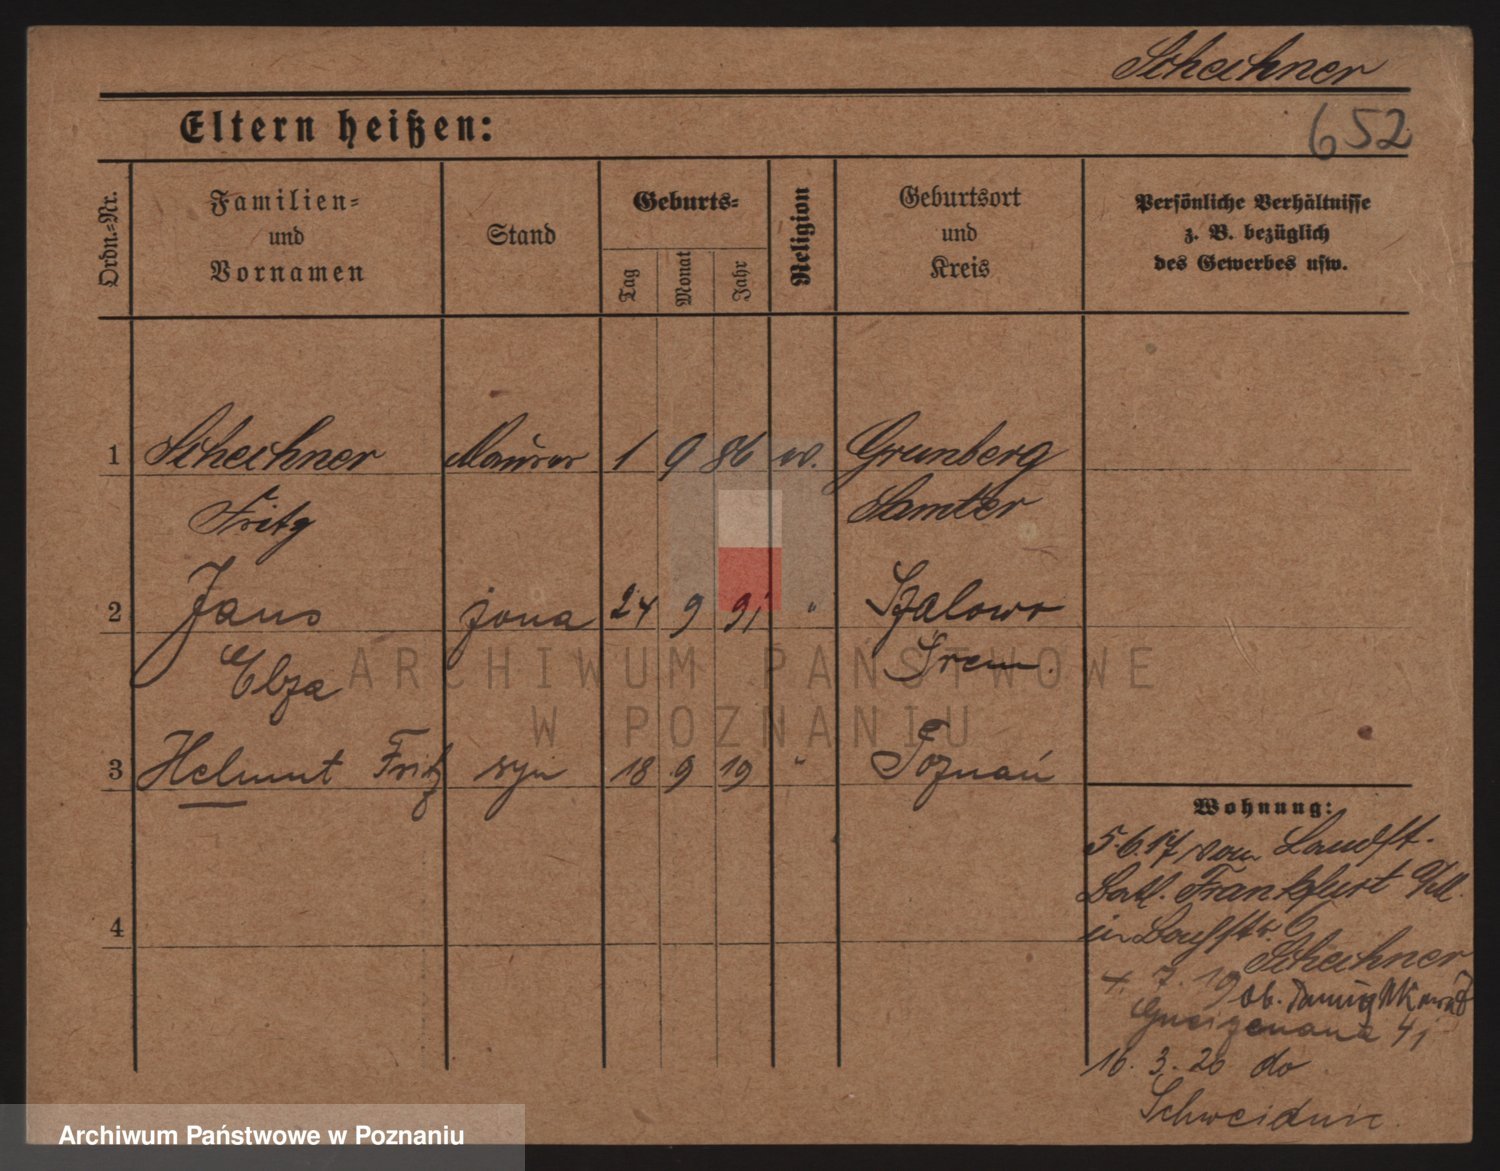 Schechner
652
Eltern heißen:
Ordn.-Nr.
Familien-
und
Vornamen
Stand
Geburts-
Tag
Monat
Jahr
Religion
Geburtsort
und
Kreis
Persönliche Verhältnisse
z. B. bezüglich
des Gewerbes usw.
1 Schechner Maurer 1 9 86 ev. Grünberg
Fritz Samter
2 Jans żona 24 9 91 "
Śrem
3 Helmut Fritz syn 18 9 19 " Poznań
4
Wohnung:
5.6.17 vom Landst.
Batl. Frankfurt
in
Schechner
7. 19
Gneisenaua 4
16. 3. 20 do
Schweidnic.
ARCHIWUM PAŃSTWOWE
W POZNANIU
Archiwum Państwowe w Poznaniu